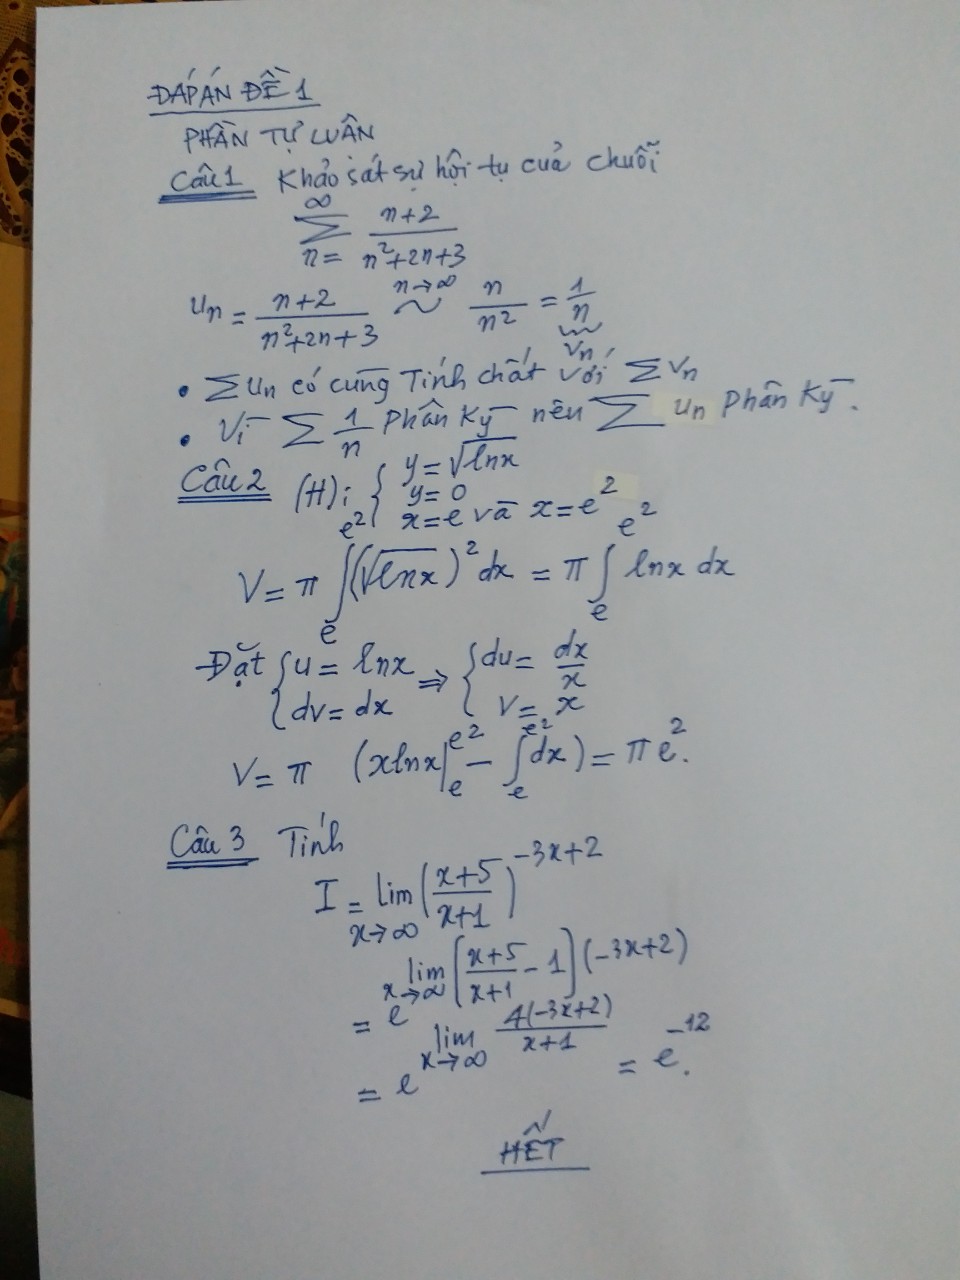 ĐÁP ÁN ĐỀ 1
PHẦN TỰ LUẬN
Câu 1 Khảo sát sự hội tụ của chuỗi
∑_{n=}^{∞} (n+2)/(n²+2n+3)
u_n = (n+2)/(n²+2n+3) ~^{n→∞} n/n² = 1/n (v_n)
• ∑ u_n có cùng Tính chất với ∑ v_n
• Vì ∑ 1/n Phân Kỳ nên ∑ u_n phân Kỳ.
Câu 2 (H): { y = √lnx
y = 0
x = e và x = e²
V = π ∫_e^{e²} (√lnx)² dx = π ∫_e^{e²} lnx dx
Đặt { u = lnx ; dv = dx ⇒ { du = dx/x ; v = x
V = π (xlnx|_e^{e²} − ∫_e^{e²} dx) = πe².
Câu 3 Tính
I = lim_{x→∞} ((x+5)/(x+1))^{-3x+2}
= e^{lim_{x→∞} [(x+5)/(x+1) − 1](-3x+2)}
= e^{lim_{x→∞} 4(-3x+2)/(x+1)} = e^{-12}.
HẾT